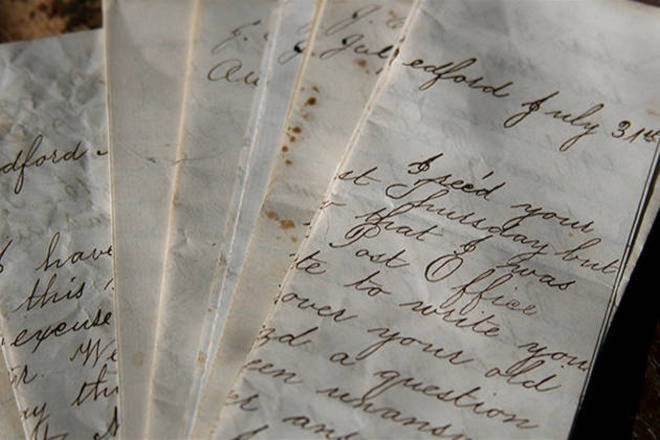 dford
I have
this
excuse
r. We
Au
J. Jul
edford July 31st
I rec'd your
st Thursday but
that I was
Post Office
te to write you
over your old
a question
een unansw